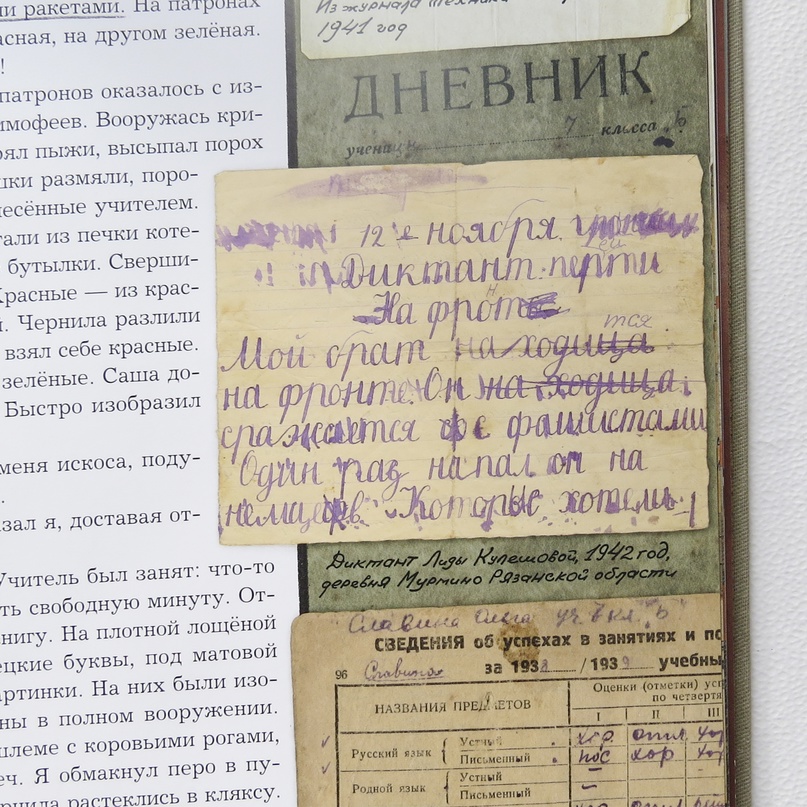 ми ракетами. На патронах
асная, на другом зелёная.
!
патронов оказалось с из-
имофеев. Вооружась кри-
рял пыжи, высыпал порох
шки размяли, поро-
несённые учителем.
гали из печки коте-
бутылки. Сверши-
Красные — из крас-
й. Чернила разлили
взял себе красные.
зелёные. Саша до-
Быстро изобразил
меня искоса, поду-
.
зал я, доставая от-
Учитель был занят: что-то
ть свободную минуту. От-
книгу. На плотной лощёной
ецкие буквы, под матовой
артинки. На них были изо-
ны в полном вооружении.
шлеме с коровьими рогами,
еч. Я обмакнул перо в пу-
рнила растеклись в кляксу.
Из журнала
1941 год
ДНЕВНИК
учениц 7 класса „Б
12е ноября
Диктант
На фронте
Мой брат находица тся
на фронте. Он на ходица
сражается с фашистами
Один раз напал он на
немцев. Которые хотели
Диктант Лиды Кулешовой, 1942 год,
деревня Мурмино Рязанской области
Славина Ольга уч
СВЕДЕНИЯ об успехах в занятиях и по
96 за 193 /193 учебны
НАЗВАНИЯ ПРЕДМЕТОВ
Оценки (отметки) усп
по четвертя
I II III
Русский язык { Устный хор. отл. хор
Письменный пос хор хор
Родной язык { Устный
Письменный